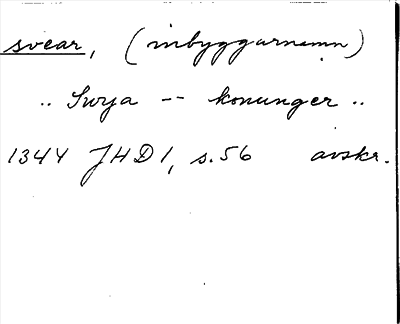 svear, (inbyggarnamn)
.. Swya -- konunger ..
1344 JHD 1, s. 56 avskr.